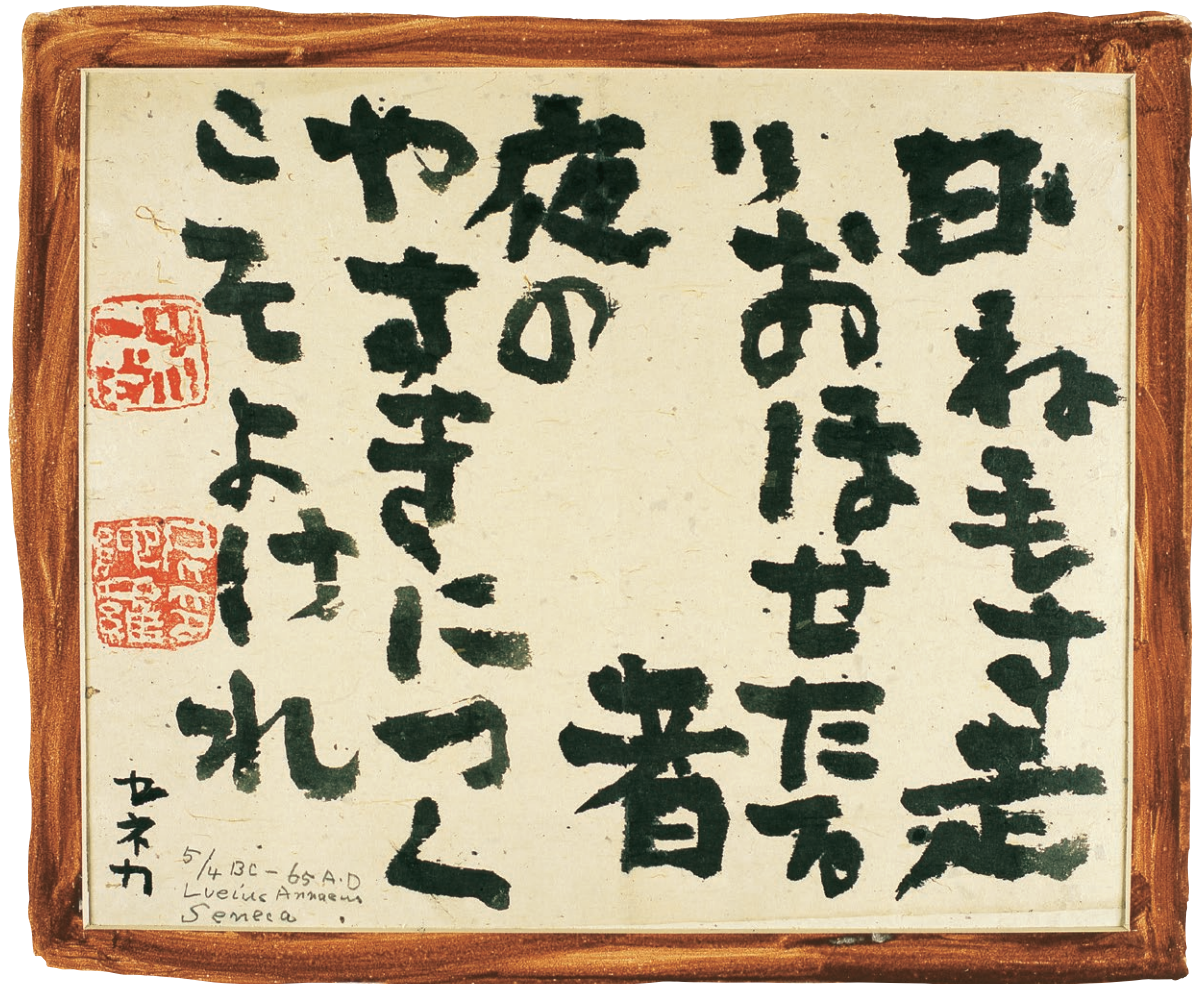 日ね毛す走
りおほせたる
者
夜の
やすきにつく
こそよけれ
セネカ
5/4 BC - 65 A.D
Lucius Annaeus
Seneca.
中川
一政